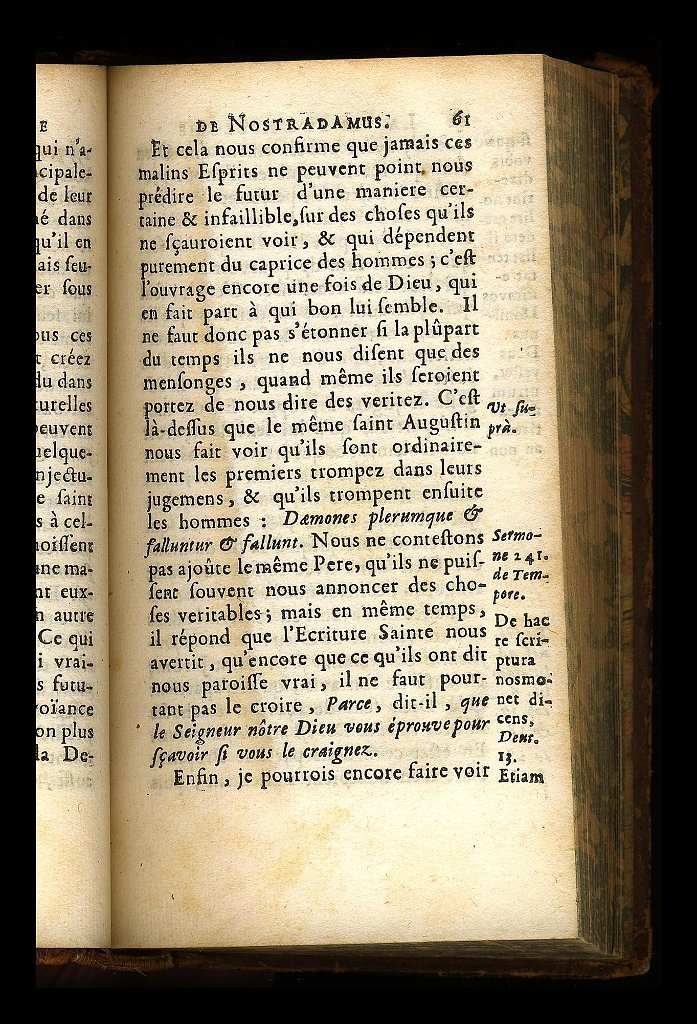 E
qui n'a-
cipale-
de leur
é dans
qu'il en
ais ſeu-
er ſous
ous ces
t créez
du dans
turelles
peuvent
uelque-
njectu-
e ſaint
s à cel-
noiſſent
ne ma-
nt eux-
n autre
Ce qui
i vrai-
s futu-
voïance
on plus
la De-
DE NOSTRADAMUS. 61
Et cela nous confirme que jamais ces
malins Eſprits ne peuvent point nous
prédire le futur d'une maniere cer-
taine & infaillible, ſur des choſes qu'ils
ne ſçauroient voir, & qui dépendent
purement du caprice des hommes ; c'eſt
l'ouvrage encore une fois de Dieu, qui
en fait part à qui bon lui ſemble. Il
ne faut donc pas s'étonner ſi la plûpart
du temps ils ne nous diſent que des
menſonges, quand même ils ſeroient
portez de nous dire des veritez. C'eſt
là-deſſus que le même ſaint Auguſtin
nous fait voir qu'ils ſont ordinaire-
ment les premiers trompez dans leurs
jugemens, & qu'ils trompent enſuite
les hommes : Dæmones plerumque &
falluntur & fallunt. Nous ne conteſtons
pas ajoûte le même Pere, qu'ils ne puiſ-
ſent ſouvent nous annoncer des cho-
ſes veritables ; mais en même temps,
il répond que l'Ecriture Sainte nous
avertit, qu'encore que ce qu'ils ont dit
nous paroiſſe vrai, il ne faut pour-
tant pas le croire, Parce, dit-il, que
le Seigneur nôtre Dieu vous éprouve pour
ſçavoir ſi vous le craignez.
Enfin, je pourrois encore faire voir
Ut ſu-
prà.
Sermo-
ne 241.
de Tem-
pore.
De hac
re ſcri-
ptura
nosmo-
net di-
cens,
Deut.
13.
Etiam